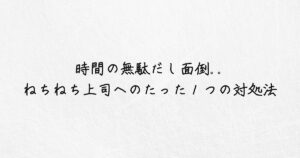 時間の無駄だし面倒。。
ねちねち上司へのたった1つの対処法